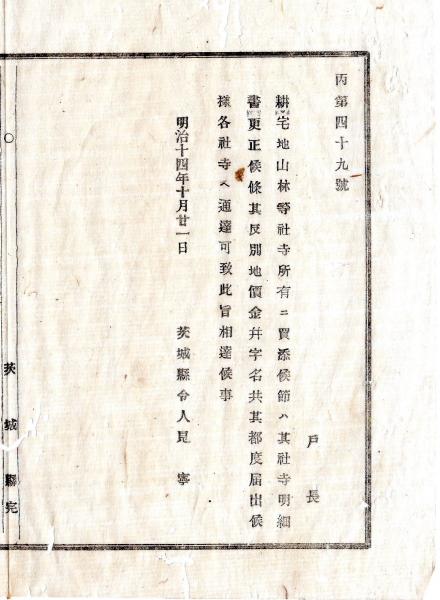 丙第四十九號
戸長
耕宅地山林等社寺所有ニ買添候節ハ其社寺明細
書更正候條其反別地價金幷字名共其都度届出候
様各社寺ヘ通達可致此旨相達候事
明治十四年十月廿一日
茨城縣令人見寧
茨城縣